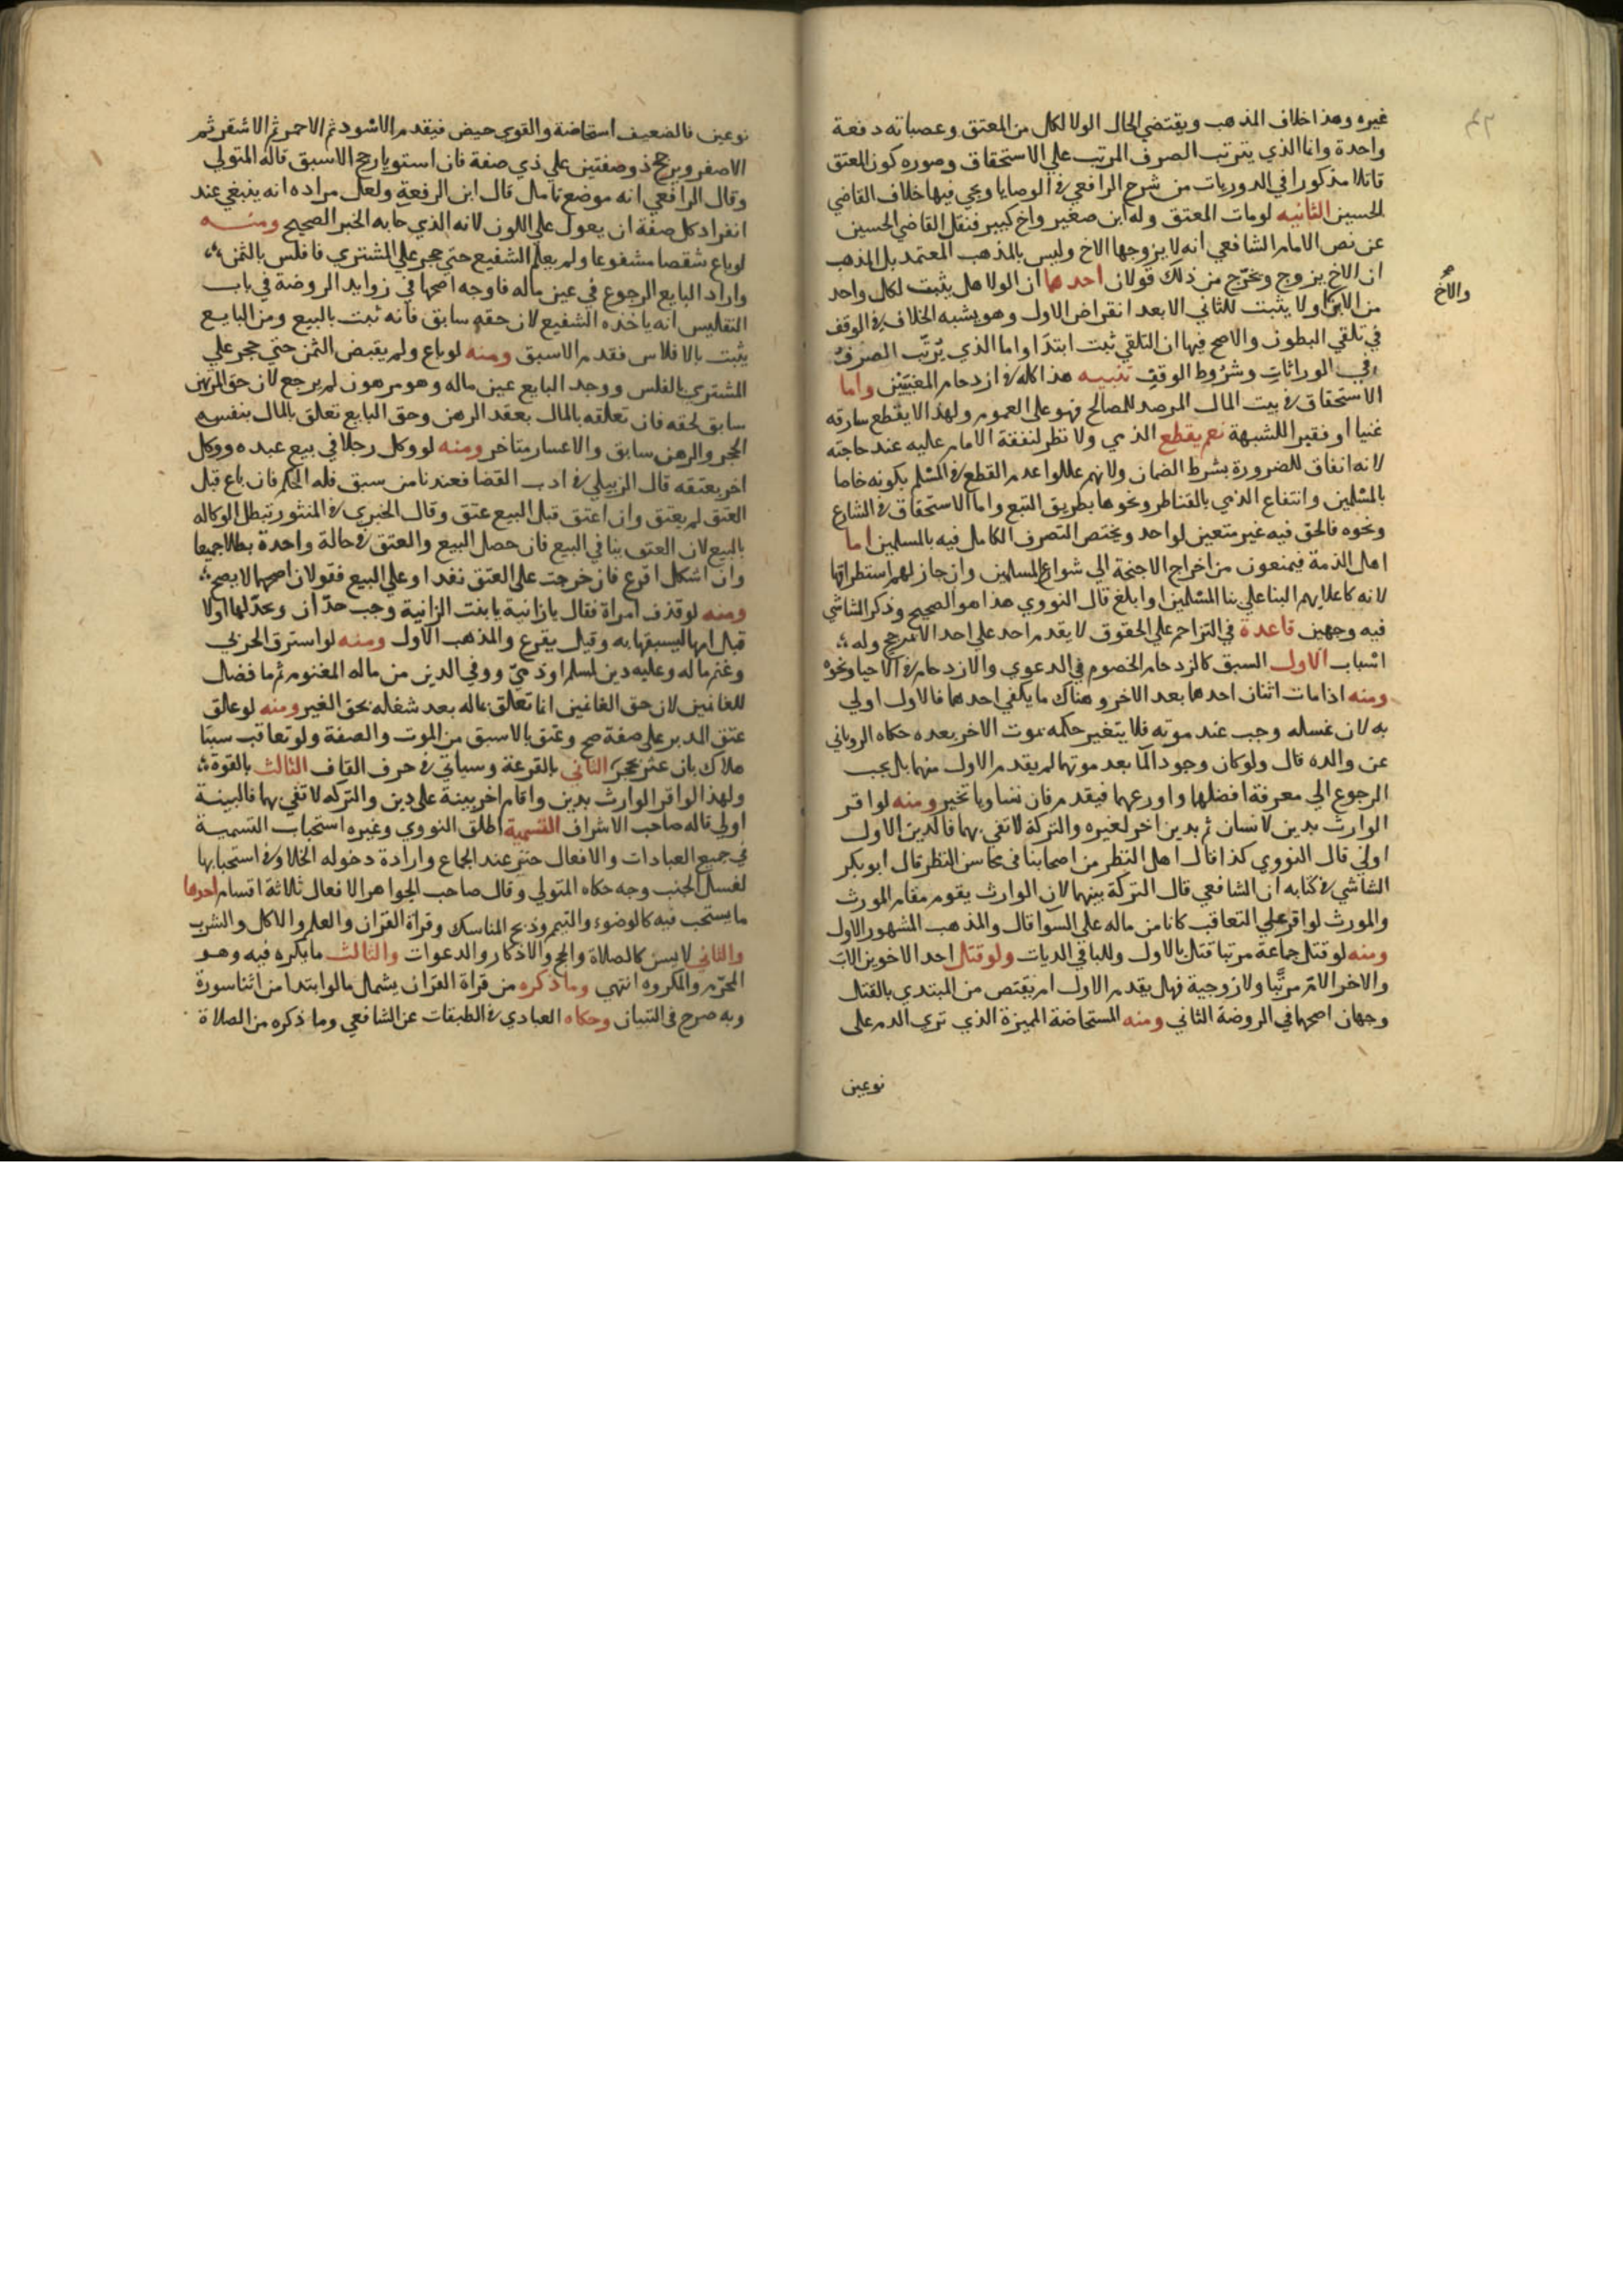 غيره وهذا خلاف المذهب ويقتضي الحال الولا لكل من المعتق وعصباته دفعة
واحدة وانما الذي يترتب الصرف المرتب علي الاستحقاق وصوره كون المعتق
قاتلا مذكورا في الدوريات من شرح الرافعي في الوصايا ويجي فيها خلاف القاضي
الحسين الثانيه لو مات المعتق وله ابن صغير واخ كبير فنقل القاضي الحسين
عن نص الامام الشافعي انه لا يزوجها الاخ وليس بالمذهب المعتمد بل المذهب
ان الاخ يزوج ويخرج من ذلك قولان احدهما ان الولا هل يثبت لكل واحد
والاخ
من الابن ولا يثبت للثاني الا بعد انقراض الاول وهو يشبه الخلاف في الوقف
في تلقي البطون والاصح فيها ان التلقي ثبت ابتدا واما الذي يُرتّب الصرف
في الوراثات وشروط الوقف تنبيه هذا كله في ازدحام المعينين واما
الاستحقاق في بيت المال المرصد للمصالح فهو على العموم ولهذا لا يقطع سارقه
غنيا او فقيرا للشبهة نعم يقطع الذمي ولا نظر لنفقة الامام عليه عند حاجته
لانه انفاق للضرورة بشرط الضمان ولانهم عللوا عدم القطع في المسلم بكونه خاصا
بالمسلمين وانتفاع الذمي بالقناطر ونحوها بطريق التبع واما الاستحقاق في الشارع
ونحوه فالحق فيه غير متعين لواحد ويختص التصرف الكامل فيه بالمسلمين اما
اهل الذمة فيمنعون من اخراج الاجنحة الي شوارع المسلمين وان جاز لهم استطراقها
لانه كاعلايهم البنا علي بنا المسلمين او ابلغ قال النووي هذا هو الصحيح وذكر الشاشي
فيه وجهين قاعدة في التزاحم علي الحقوق لا يقدم احد على احد الا بمرجح وله
اسباب الاول السبق كالزدحام الخصوم في الدعوي والازدحام في الاحيا ونحوه
ومنه اذا مات اثنان احدهما بعد الاخر وهناك ما يكفي احدهما فالاول اولي
به لان غسله وجب عند موته فلا يتغير حكمه بموت الاخر بعده حكاه الروياني
عن والده قال ولو كان وجود الما بعد موتهما لم يقدم الاول منهما بل يجب
الرجوع الي معرفة افضلهما واورعهما فيقدم فان تساويا تخير ومنه لو اقر
الوارث بدين لانسان ثم بدين اخر لغيره والتركة لا تفي بهما فالدين الاول
اولي قال النووي كذا قال اهل النظر من اصحابنا في محاسن النظر قال ابو بكر
الشاشي في كتابه ان الشافعي قال التركة بينهما لان الوارث يقوم مقام المورث
والمورث لو اقر علي التعاقب كانا من ماله علي السوا قال والمذهب المشهور الاول
ومنه لو قتل جماعة مرتبا قتل بالاول وللباقي الديات ولو قتل احد الاخوين الاب
والاخر الام مرتبا ولا زوجية فهل يقدم الاول ام يقتص من المبتدي بالقتل
وجهان اصحهما في الروضة الثاني ومنه المستحاضة المميزة الذي تري الدم على
نوعين
نوعين فالضعيف استحاضة والقوي حيض فيقدم الاسود ثم الاحمر ثم الاشقر ثم
الاصفر ويرجح ذو صفتين علي ذي صفة فان استويا رجح الاسبق قاله المتولي
وقال الرافعي انه موضع تامل قال ابن الرفعة ولعل مراده انه ينبغي عند
انفراد كل صفة ان يعول علي اللون لانه الذي جا به الخبر الصحيح ومنه
لو باع شقصا مشفوعا ولم يعلم الشفيع حتي حجر علي المشتري فافلس بالثمن
واراد البايع الرجوع في عين ماله فاوجه اصحها في زوايد الروضة في باب
التفليس انه ياخذه الشفيع لان حقه سابق فانه ثبت بالبيع ومن البايع
يثبت بالافلاس فقدم الاسبق ومنه لو باع ولم يقبض الثمن حتي حجر علي
المشتري بالفلس ووجد البايع عين ماله وهو مرهون لم يرجع لان حق المرتهن
سابق لحقه فان تعلقه بالمال بعقد الرهن وحق البايع تعلق بالمال بنفس
الحجر والرهن سابق والاعسار متاخر ومنه لو وكل رجلا في بيع عبده ووكل
اخر بعتقه قال الزبيلي في ادب القضا فعندنا من سبق فله الحكم فان باع قبل
العتق لم يعتق وان اعتق قبل البيع عتق وقال الخبري في المنثور تبطل الوكاله
بالبيع لان العتق ينافي البيع فان حصل البيع والعتق في حالة واحدة بطلا جميعا
وان اشكل اقرع فان خرجت على العتق نفذ او على البيع فقولان اصحهما لا يصح
ومنه لو قذف امراة فقال يا زانية يا بنت الزانية وجب حدان ويحد لها اولا
قبل امها لسبقها به وقيل يقرع والمذهب الاول ومنه لو استرق الحربي
وغنم ماله وعليه دين لمسلم او ذمي ووفي الدين من ماله المغنوم ثم ما فضل
للغانمين لان حق الغانمين انما تعلق بماله بعد شغله بحق الغير ومنه لو علق
عتق المدبر على صفة صح وعتق بالاسبق من الموت والصفة ولو تعاقب سببا
هلاك بان عثر بحجر الثاني بالقرعة وسياتي في حرف القاف الثالث بالقوة
ولهذا لو اقر الوارث بدين واقام اخر بينة على دين والتركه لا تفي بهما فالبينة
اولي قاله صاحب الاشراف التسمية اطلق النووي وغيره استحباب التسمية
في جميع العبادات والافعال حتي عند الجماع وارادة دخوله الخلا وفي استحبابها
لغسل الجنب وجه حكاه المتولي وقال صاحب الجواهر الافعال ثلاثة اقسام احدها
ما يستحب فيه كالوضوء والتيمم وذبح المناسك وقراة القران والعلم والاكل والشرب
والثاني لا يسن كالصلاة والحج والاذكار والدعوات والثالث ما يكره فيه وهو
المحرم والمكروه انتهي وما ذكره من قراة القران يشمل ما لو ابتدا من اثنا سورة
وبه صرح في التبيان وحكاه العبادي في الطبقات عن الشافعي وما ذكره من الصلاة